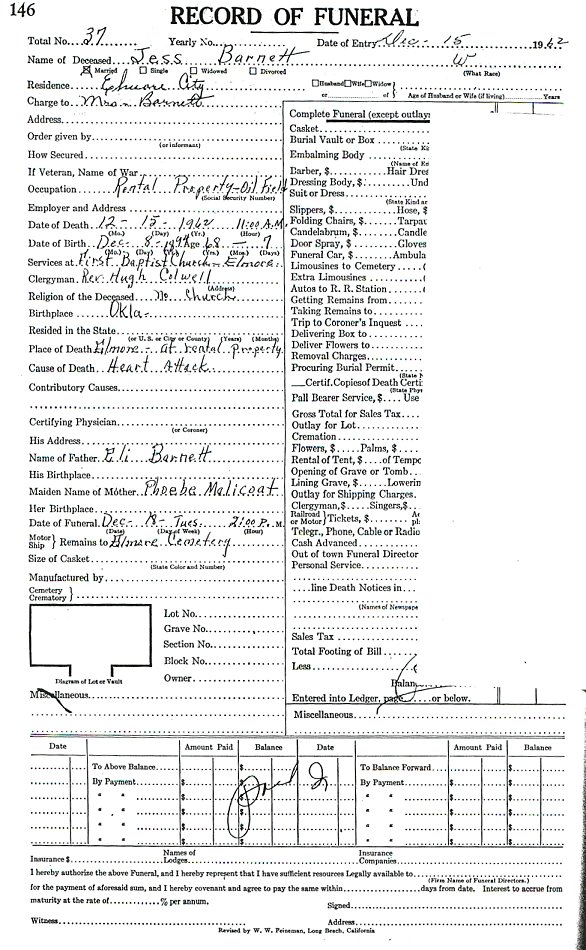 146
RECORD OF FUNERAL
Total No. 37 Yearly No. Date of Entry Dec- 15 1962
Name of Deceased Jess Barnett W
Married Single Widowed Divorced (What Race)
Residence Elmore City Husband Wife Widow or of Age of Husband or Wife (if living) Years
Charge to Mrs- Barnett
Address
Order given by
(or informant)
How Secured
If Veteran, Name of War
Occupation Rental Property-Oil Field
(Social Security Number)
Employer and Address
Date of Death 12 - 15 - 1962 11:00 A.M.
(Mo.) (Day) (Yr.) (Hour)
Date of Birth Dec- 8- 1894 Age 68 - 7
(Mo.) (Day) (Yr.) (Yrs.) (Mos.) (Days)
Services at First Baptist Church- Elmore
Clergyman Rev. Hugh Colwell
(Address)
Religion of the Deceased No Church
Birthplace Okla-
Resided in the State
(or U. S. or City or County) (Years) (Months)
Place of Death Elmore - at rental property
Cause of Death Heart Attack
Contributory Causes
Certifying Physician
(or Coroner)
His Address
Name of Father Eli Barnett
His Birthplace
Maiden Name of Mother Phoebe Malicoat
Her Birthplace
Date of Funeral Dec- 18- Tues. 2:00 P. M.
(Date) (Day of Week) (Hour)
Motor Ship } Remains to Elmore Cemetery
Size of Casket
(State Color and Number)
Manufactured by
Cemetery Crematory }
Lot No.
Grave No.
Section No.
Block No.
Owner
Diagram of Lot or Vault
Miscellaneous
Complete Funeral (except outlays
Casket
Burial Vault or Box
(State Ki
Embalming Body
(Name of Em
Barber, $ Hair Dres
Dressing Body, $ Und
Suit or Dress
(State Kind an
Slippers, $ Hose, $
Folding Chairs, $ Tarpau
Candelabrum, $ Candle
Door Spray, $ Gloves
Funeral Car, $ Ambula
Limousines to Cemetery (
Extra Limousines (
Autos to R. R. Station (
Getting Remains from
Taking Remains to
Trip to Coroner's Inquest
Delivering Box to
Deliver Flowers to
Removal Charges
Procuring Burial Permit
(State N
Certif. Copies of Death Certi
(State Phys
Pall Bearer Service, $ Use
Gross Total for Sales Tax
Outlay for Lot
Cremation
Flowers, $ Palms, $
Rental of Tent, $ of Tempo
Opening of Grave or Tomb
Lining Grave, $ Lowerin
Outlay for Shipping Charges
Clergyman, $ Singers, $
Railroad or Motor } Tickets, $
Telegr., Phone, Cable or Radio
Cash Advanced
Out of town Funeral Director
Personal Service
line Death Notices in
(Names of Newspape
Sales Tax
Total Footing of Bill
Less
Balan
Entered into Ledger, page or below.
Miscellaneous
Date Amount Paid Balance Date Amount Paid Balance
To Above Balance $ To Balance Forward $
By Payment $ $ By Payment $ $
" " $ $ " " $ $
" " $ $ " " $ $
" " $ $ " " $ $
" " $ $ " " $ $
Paid
Insurance $ Names of Lodges Insurance Companies
I hereby authorize the above Funeral, and I hereby represent that I have sufficient resources Legally available to
(Firm Name of Funeral Directors.)
for the payment of aforesaid sum, and I hereby covenant and agree to pay the same within days from date. Interest to accrue from
maturity at the rate of % per annum. Signed
Witness Address
Revised by W. W. Peineman, Long Beach, California